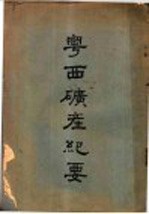 粤西礦産紀要